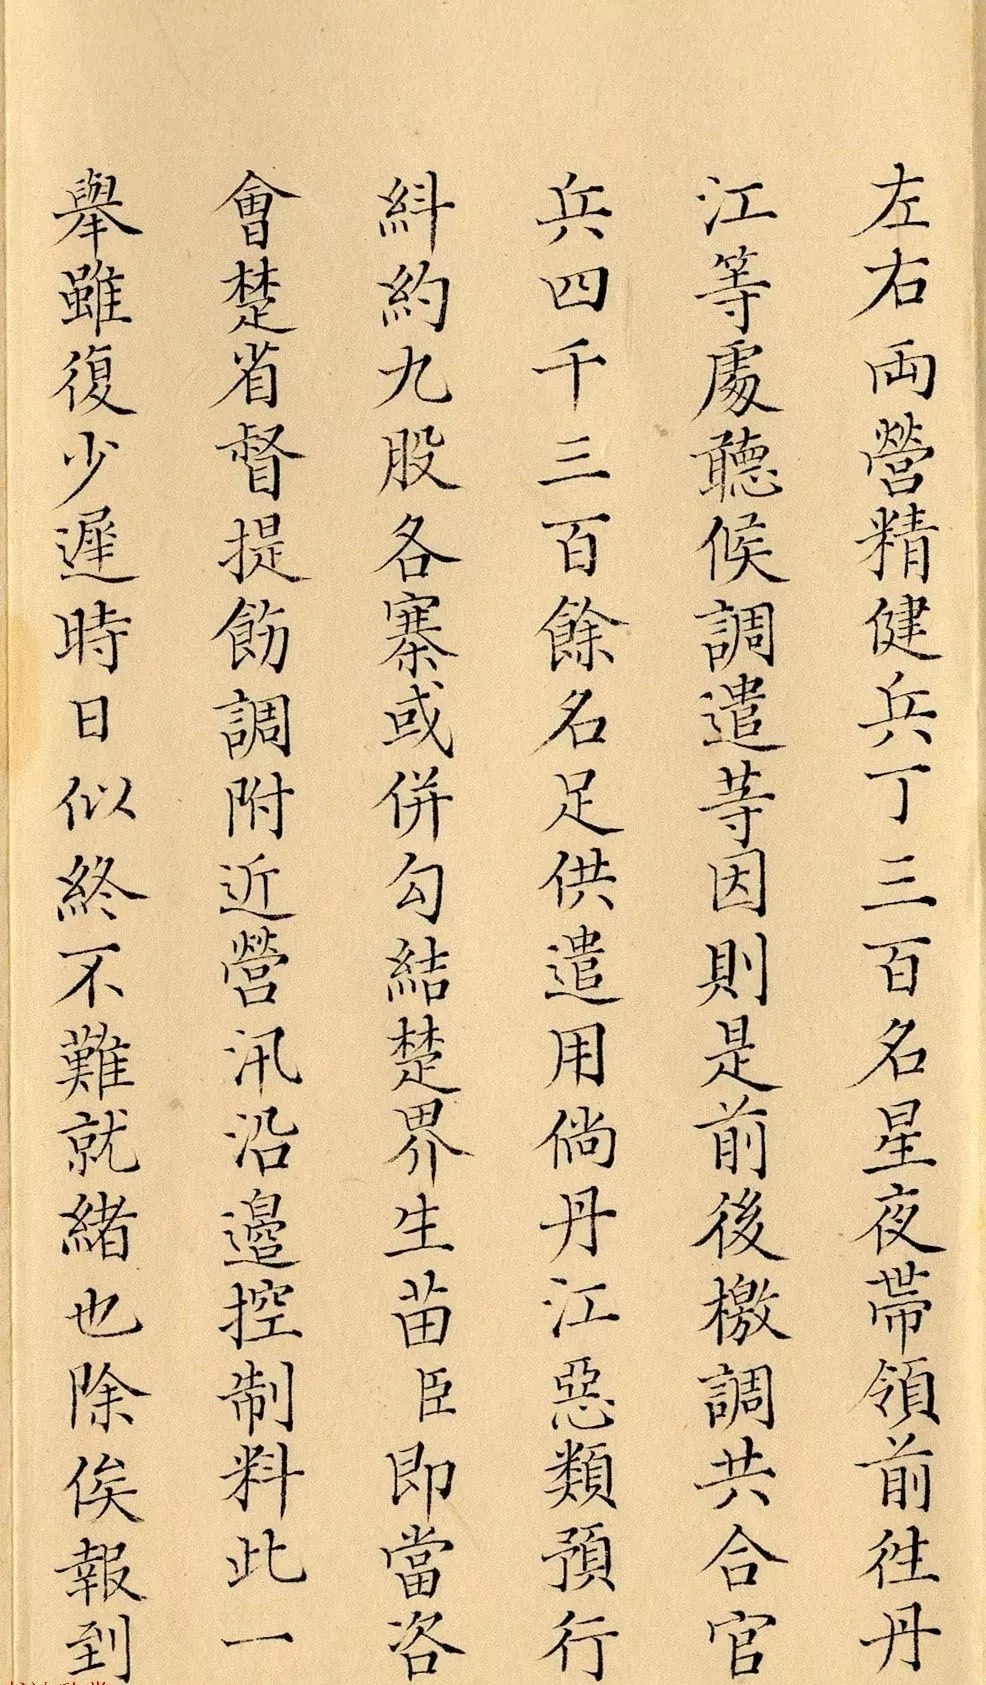 左右両營精健兵丁三百名星夜帶領前往丹
江等處聽候調遣等因則是前後檄調共合官
兵四千三百餘名足供遣用倘丹江惡類預行
糾約九股各寨或併勾結楚界生苗臣即當咨
會楚省督提飭調附近營汛沿邊控制料此一
舉雖復少遲時日似終不難就緒也除俟報到